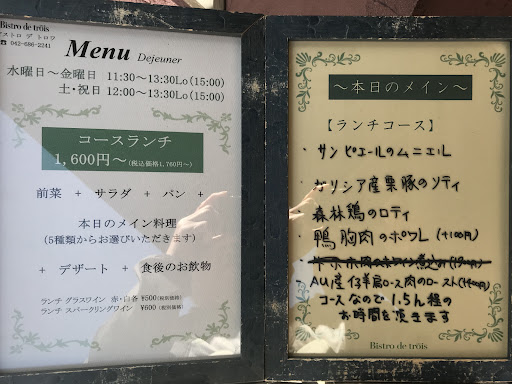 Bistro de trois
ビストロ デ トロワ
☎ 042-686-2241
Menu Dejeuner
水曜日～金曜日 11:30～13:30Lo(15:00)
土・祝日 12:00～13:30Lo(15:00)
コースランチ
1,600円～(税込価格1,760円～)
前菜 + サラダ + パン +
本日のメイン料理
(5種類からお選びいただきます)
+ デザート + 食後のお飲物
ランチ グラスワイン 赤・白各 ¥500(税別価格)
ランチ スパークリングワイン ¥600 (税別価格)
Bistro de tròis
～本日のメイン～
【ランチコース】
・サンピエールのムニエル
・ガリシア産栗豚のソティ
・森林鶏のロティ
・鴨胸肉のポワレ (+100円)
・AU産仔羊肩ロース肉のロースト
コースなので1.5h程の
お時間を頂きます
Bistro de tròis